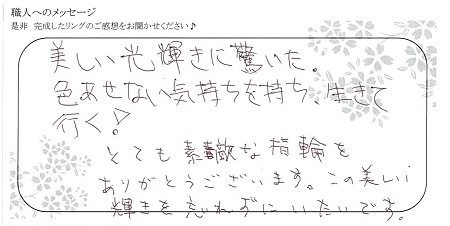 職人へのメッセージ
是非 完成したリングのご感想をお聞かせください♪
美しい光輝きに驚いた。
色あせない気持ちを持ち、生きて
行く!
とても素敵な指輪を
ありがとうございます。この美しい
輝きを忘れずにいたいです。